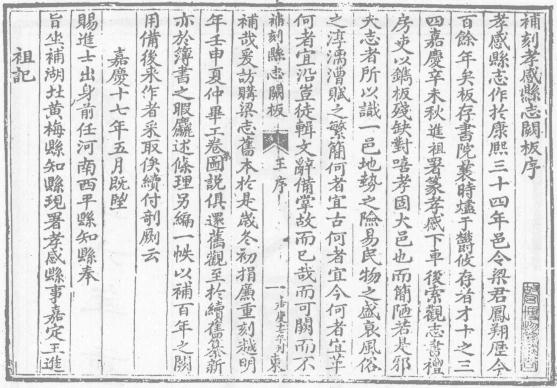 補刻孝感縣志闕板序
孝感縣志作於康熙三十四年邑令梁君鳳翔歷今
百餘年矣板存書院曩時燼于鬱攸存者才十之三
四嘉慶辛未秋進祖署篆孝感下車後索觀志書禮
房吏以鐫板殘缺對嘻孝固大邑也而簡陋若是邪
夫志者所以識一邑地勢之險易民物之盛衰風俗
之淳澆漕賦之繁簡何者宜古何者宜今何者宜革
何者宜沿豈徒輯文辭備掌故而已哉而可闕而不
補刻縣志闕板
王序
一
嘉慶十六年刊
補哉爰訪購梁志舊本於是歲冬初捐廉重刻越明
年壬申夏仲畢工卷圖說俱還舊觀至於續舊纂新
亦於簿書之暇麤述條理另編一帙以補百年之闕
用備後來作者采取俟續付剞劂云
嘉慶十七年五月既望
賜進士出身前任河南西平縣知縣奉
旨坐補湖北黃梅縣知縣現署孝感縣事嘉定王進
祖記